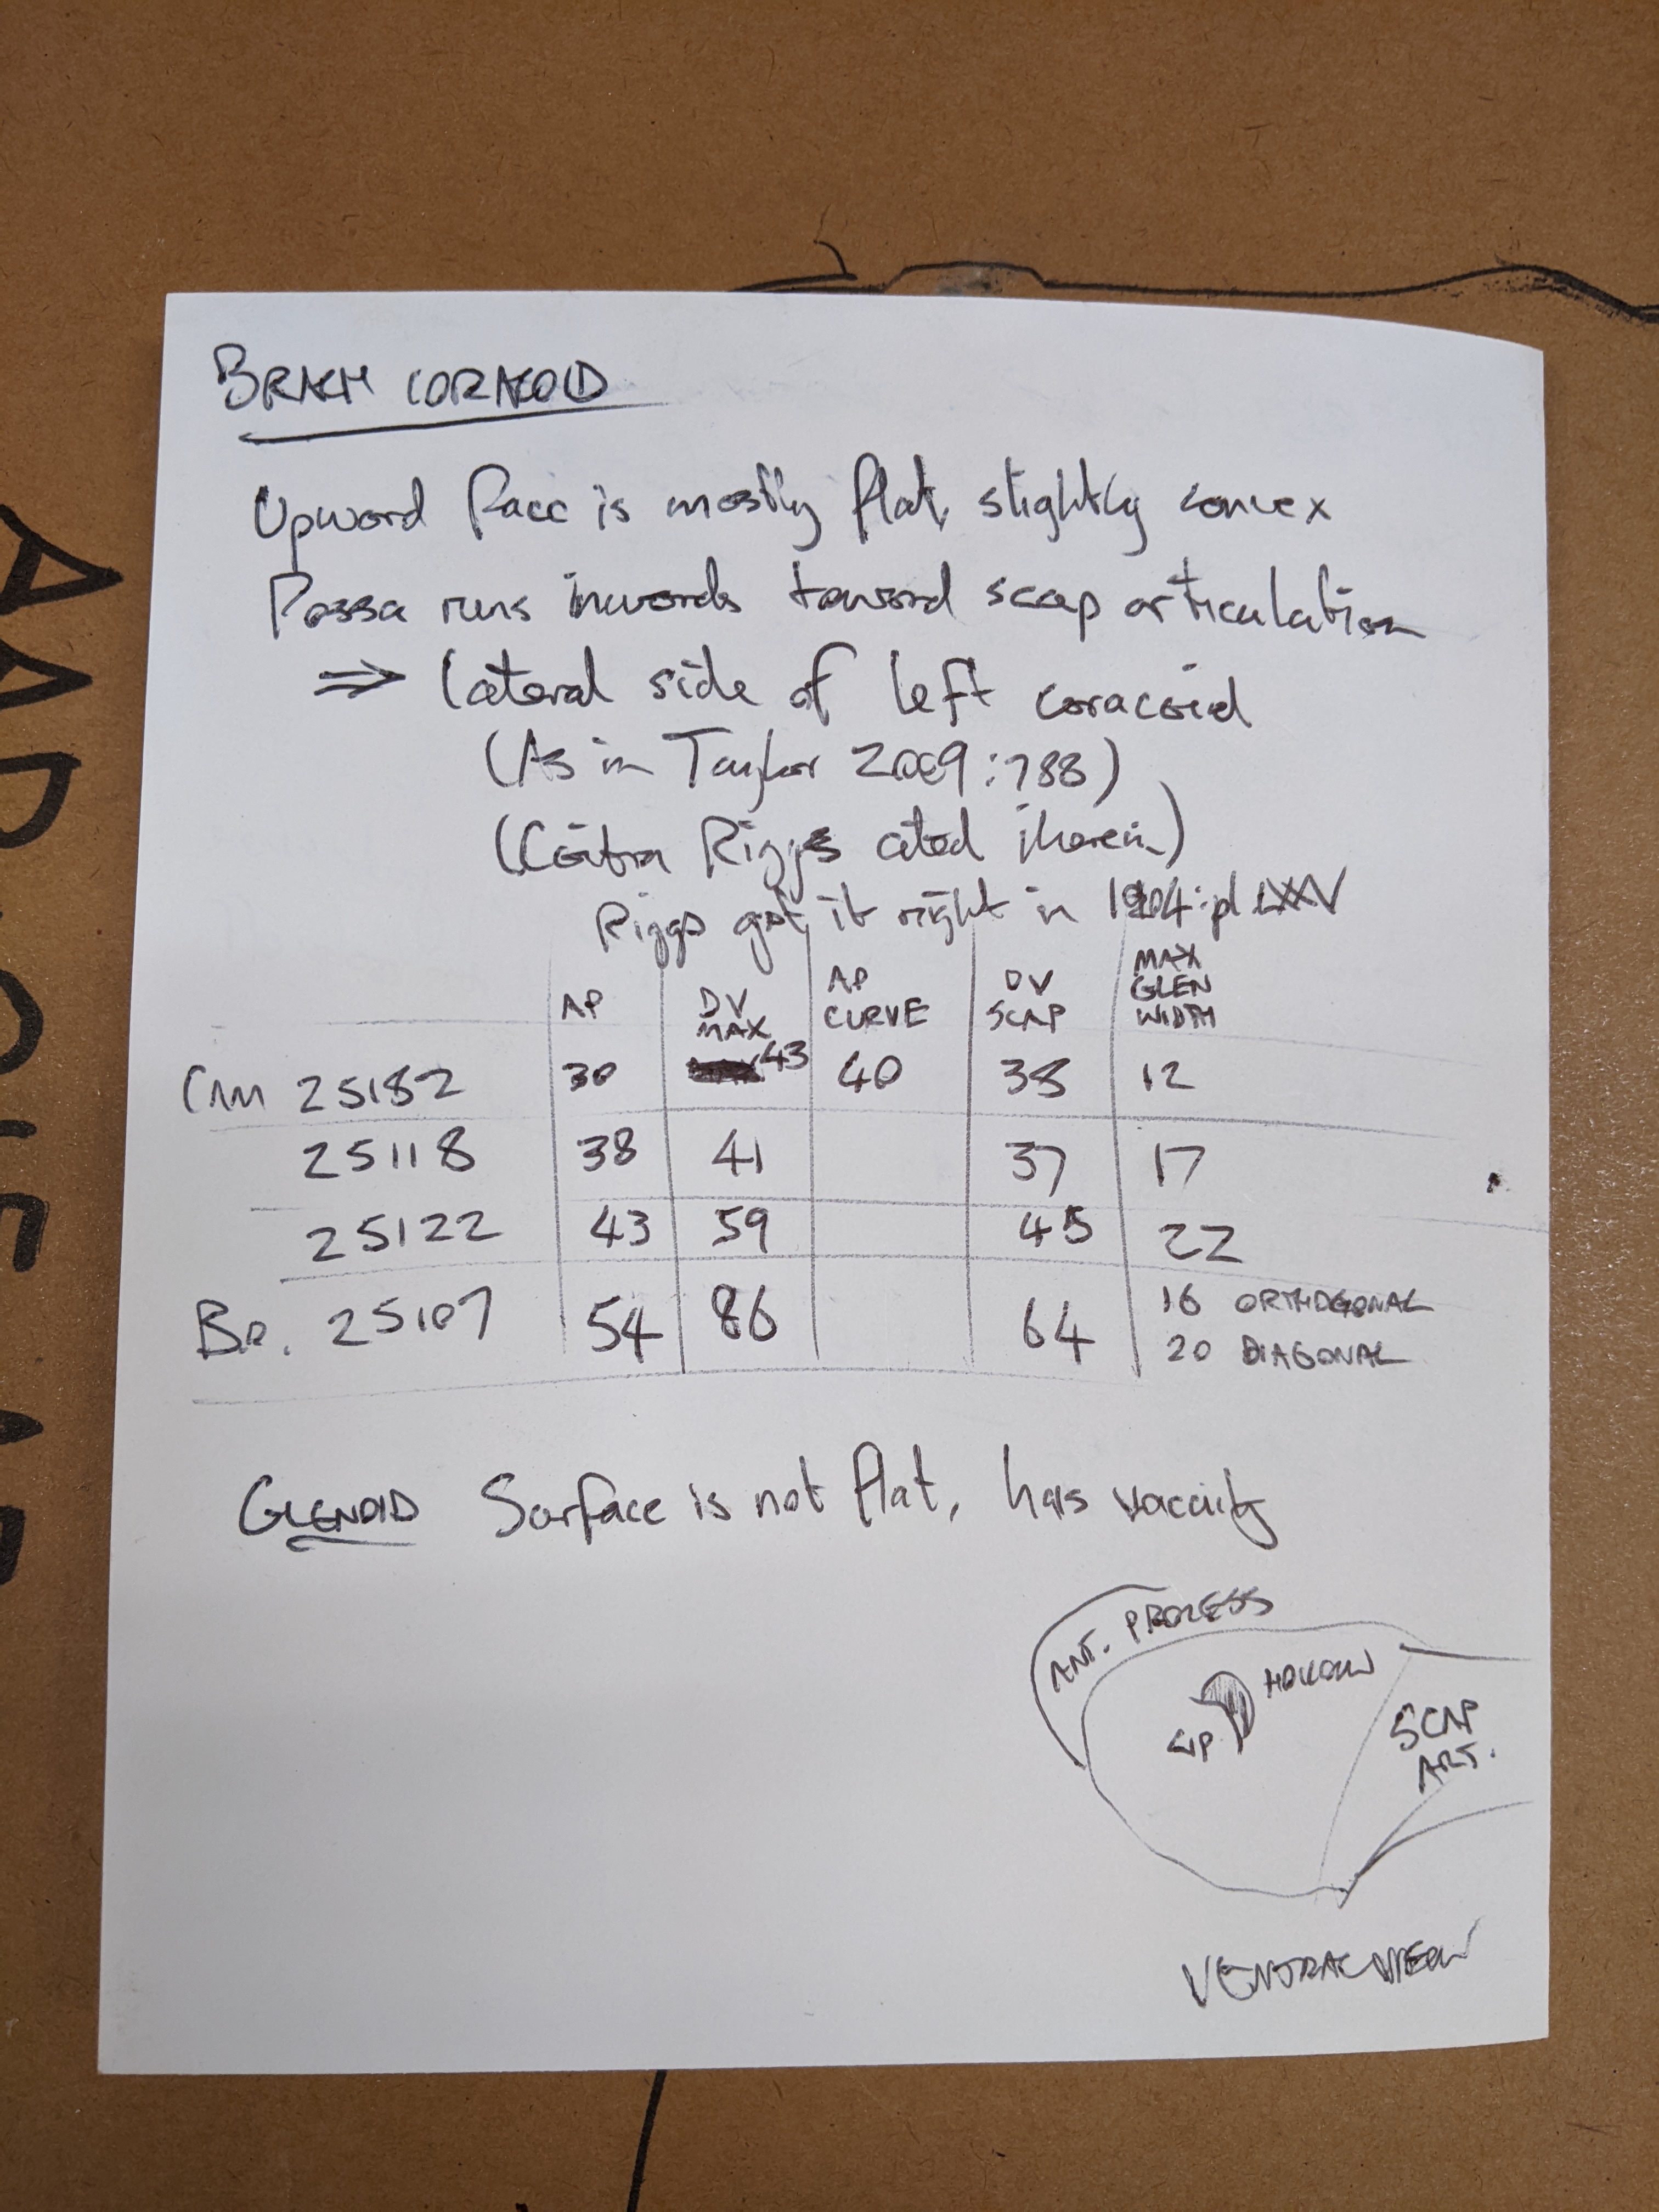 BRACH CORACOID
Upward face is mostly flat, slightly convex
Fossa runs inwards toward scap articulation
⇒ lateral side of left coracoid
(As in Taylor 2009:788)
(Contra Riggs cited therein)
Riggs got it right in 1904:pl LXXV
AP DV MAX AP CURVE DV SCAP MAX GLEN WIDTH
CAM 25182 30 43 40 38 12
25118 38 41 37 17
25122 43 59 45 22
Br. 25107 54 86 64 16 ORTHOGONAL
20 DIAGONAL
GLENOID Surface is not flat, has vacuity
ANT. PROCESS
HOLLOW
LIP
SCAP
ART.
VENTRAL VIEW